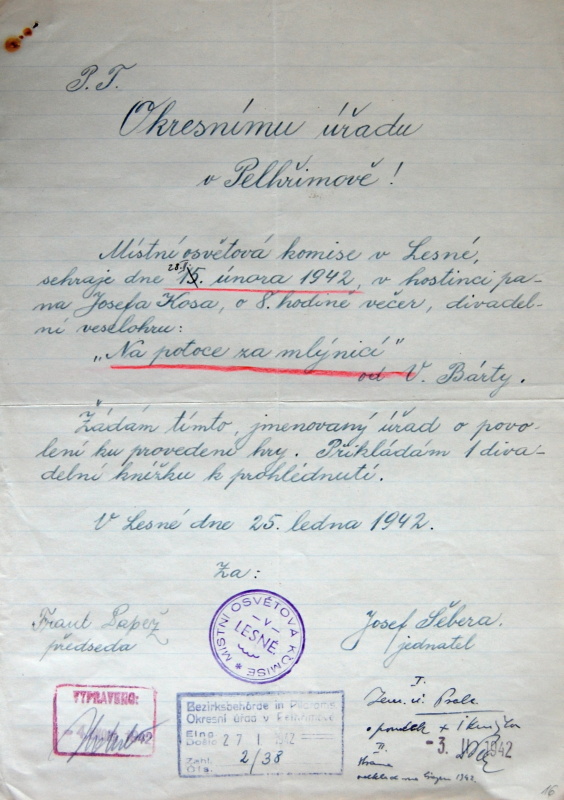 P. T.
Okresnímu úřadu
v Pelhřimově!
Místní osvětová komise v Lesné,
sehraje dne 15. února 1942, v hostinci pa-
na Josefa Kosa, o 8. hodině večer, divadel-
ní veselohru:
„Na potoce za mlýnicí"
od V. Bárty.
Žádám tímto, jmenovaný úřad o povo-
lení ku provedení hry. Přikládám 1 diva-
delní knížku k prohlédnutí.
V Lesné dne 25. ledna 1942.
Za:
Frant Papež
předseda
MÍSTNÍ OSVĚTOVÁ KOMISE
V
LESNÉ.
Josef Šebera.
jednatel
VYPRAVENO:
1942
Bezirksbehörde in Pilgrams
Okresní úřad v Pelhřimově
Eing.
Došlo 27 I 1942
Zahl
Čís. 2/38
I.
-3. II. 1942
II.
16